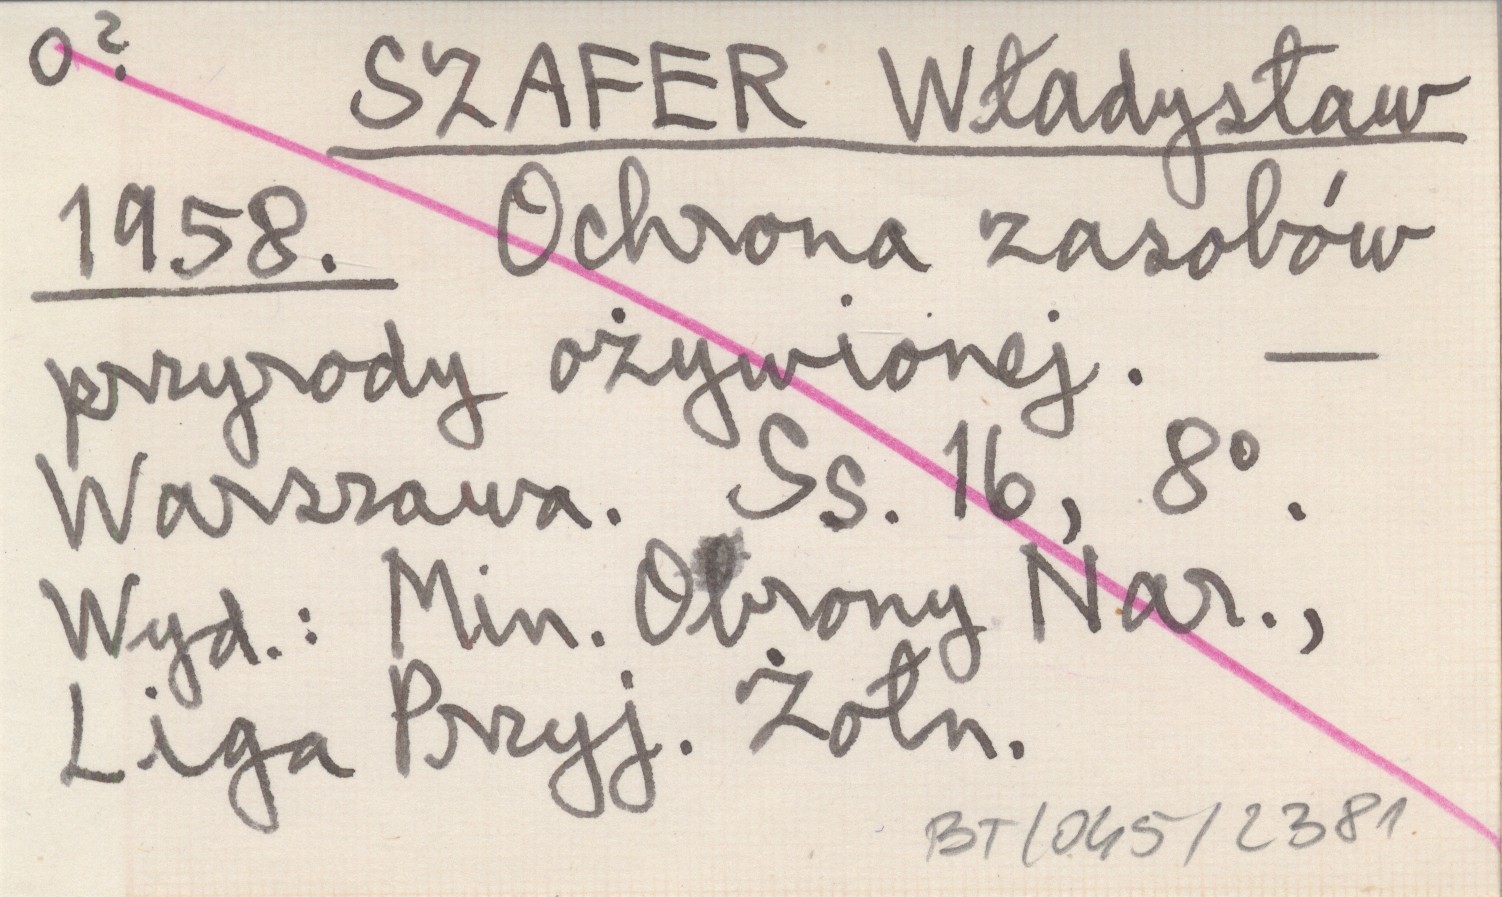 O?
SZAFER Władysław
1958. Ochrona zasobów
przyrody ożywionej. —
Warszawa. Ss. 16, 8°.
Wyd.: Min. Obrony Nar.,
Liga Przyj. Żołn.
BT/045/2381